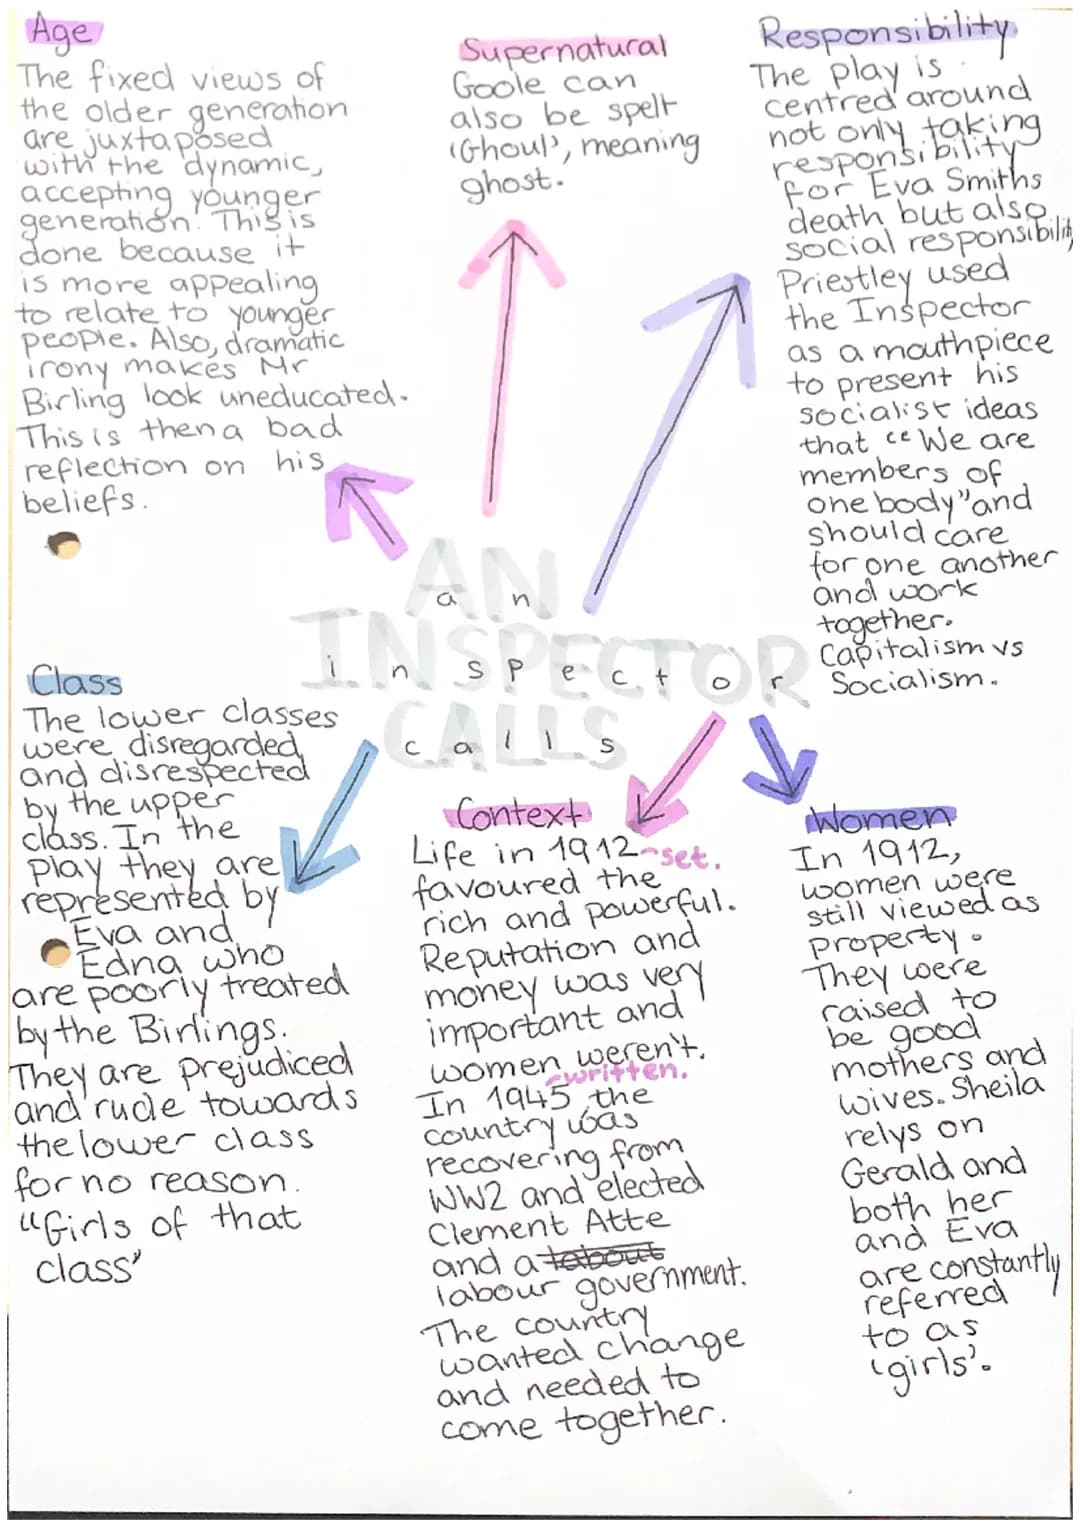 Age
The fixed views of
the older generation
are juxtaposed
with the dynamic,
accepting younger
generation. This is
done because it
is more appealing
to relate to younger
people. Also, dramatic
irony makes Mr
Birling look uneducated.
This is then a bad
reflection on his
beliefs.
Supernatural
Goole can
also be spelt
'Ghoul', meaning
ghost.
Responsibility
The play is
centred around
not only taking
responsibility
for Eva Smiths
death but also
social responsibility
Priestley used
the Inspector
as a mouthpiece
to present his
socialist ideas
that "We are
members of
one body" and
should care
for one another
and work
together.
Capitalism vs
Socialism.
AN
an
INSPECTOR
inspector
CALLS
calls
Class
The lower classes
were disregarded
and disrespected
by the upper
class. In the
play they are
represented by
Eva and
Edna who
are poorly treated
by the Birlings.
They are prejudiced
and rude towards
the lower class
for no reason.
"Girls of that
class"
Context
Life in 1912 -set.
favoured the
rich and powerful.
Reputation and
money was very
important and
women weren't.
-written.
In 1945 the
country was
recovering from
WW2 and elected
Clement Atte
and a labout
labour government.
The country
wanted change
and needed to
come together.
Women
In 1912,
women were
still viewed as
property.
They were
raised to
be good
mothers and
wives. Sheila
relys on
Gerald and
both her
and Eva
are constantly
referred
to as
'girls'.